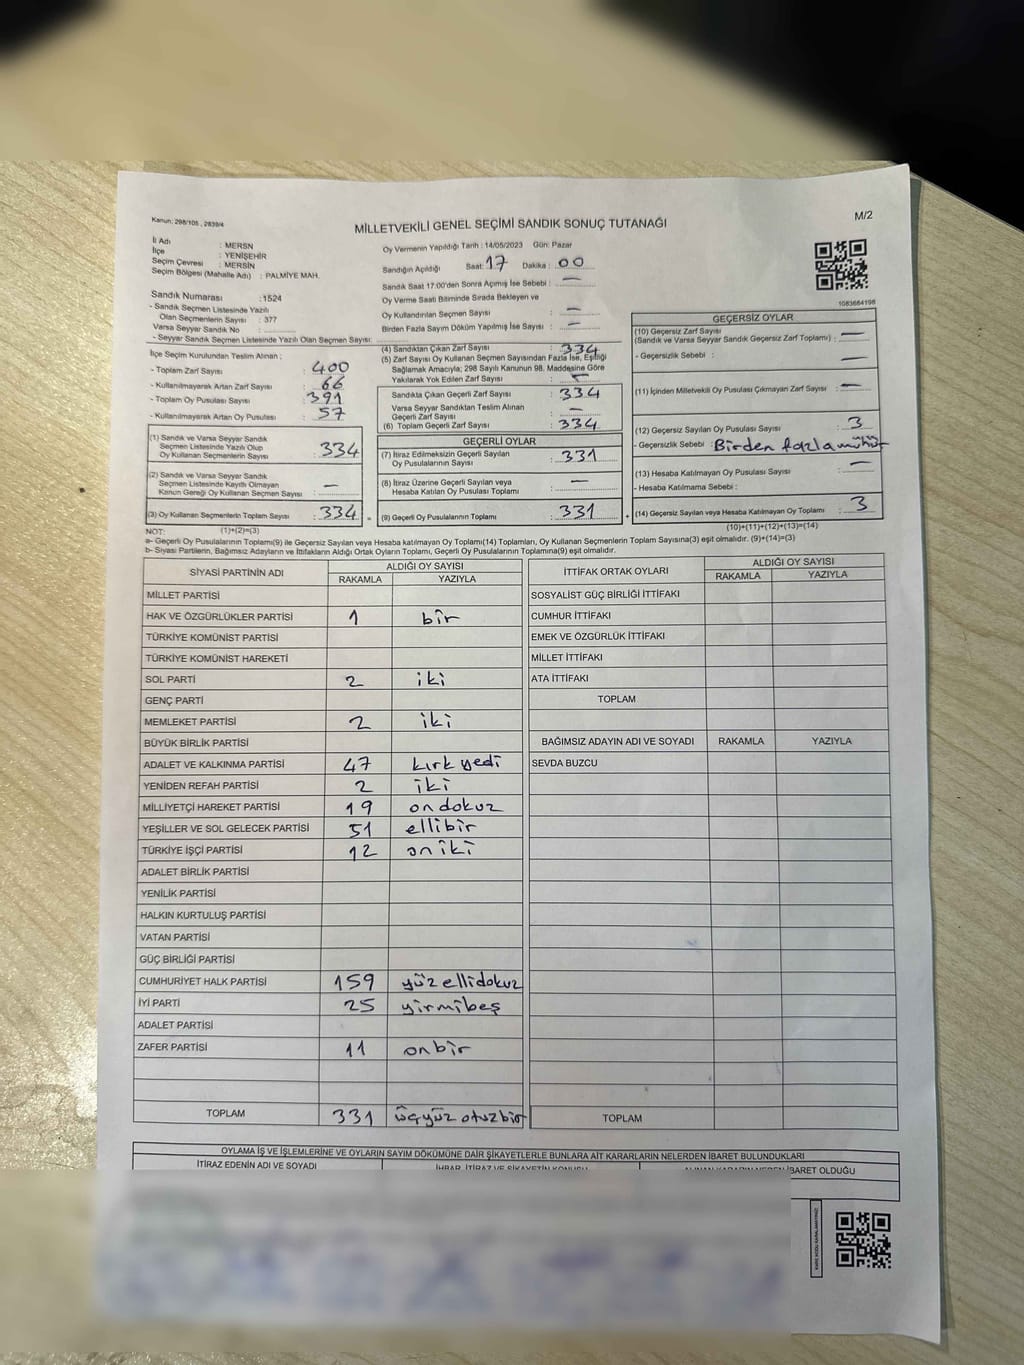 Kanun: 298/105 , 2839/4
M/2
MİLLETVEKİLİ GENEL SEÇİMİ SANDIK SONUÇ TUTANAĞI
İl Adı : MERSN
İlçe : YENİŞEHİR
Seçim Çevresi : MERSİN
Seçim Bölgesi (Mahalle Adı) : PALMİYE MAH.
Sandık Numarası :1524
- Sandık Seçmen Listesinde Yazılı
Olan Seçmenlerin Sayısı : 377
Varsa Seyyar Sandık No :
- Seyyar Sandık Seçmen Listesinde Yazılı Olan Seçmen Sayısı:
Oy Vermenin Yapıldığı Tarih : 14/05/2023 Gün: Pazar
Sandığın Açıldığı Saat: 17 Dakika : 00
Sandık Saat 17:00'den Sonra Açımış İse Sebebi : —
Oy Verme Saati Bitiminde Sırada Bekleyen ve
Oy Kullandırılan Seçmen Sayısı : —
Birden Fazla Sayım Döküm Yapılmış İse Sayısı : —
1083664198
İlçe Seçim Kurulundan Teslim Alınan ;
- Toplam Zarf Sayısı : 400
- Kullanılmayarak Artan Zarf Sayısı : 66
- Toplam Oy Pusulası Sayısı : 391
- Kullanılmayarak Artan Oy Pusulası : 57
(1) Sandık ve Varsa Seyyar Sandık
Seçmen Listesinde Yazılı Olup
Oy Kullanan Seçmenlerin Sayısı : 334
(2) Sandık ve Varsa Seyyar Sandık
Seçmen Listesinde Kayıtlı Olmayan
Kanun Gereği Oy Kullanan Seçmen Sayısı : —
(3) Oy Kullanan Seçmenlerin Toplam Sayısı : 334 =
(4) Sandıktan Çıkan Zarf Sayısı : 334
(5) Zarf Sayısı Oy Kullanan Seçmen Sayısından Fazla İse, Eşitliği
Sağlamak Amacıyla; 298 Sayılı Kanunun 98. Maddesine Göre
Yakılarak Yok Edilen Zarf Sayısı : —
Sandıkta Çıkan Geçerli Zarf Sayısı : 334
Varsa Seyyar Sandıktan Teslim Alınan
Geçerli Zarf Sayısı : —
(6) Toplam Geçerli Zarf Sayısı : 334
GEÇERLİ OYLAR
(7) İtiraz Edilmeksizin Geçerli Sayılan
Oy Pusulalarının Sayısı : 331
(8) İtiraz Üzerine Geçerli Sayılan veya
Hesaba Katılan Oy Pusulası Toplamı : —
(9) Geçerli Oy Pusulalarının Toplamı : 331 +
GEÇERSİZ OYLAR
(10) Geçersiz Zarf Sayısı
(Sandık ve Varsa Seyyar Sandık Geçersiz Zarf Toplamı) : —
- Geçersizlik Sebebi : —
(11) İçinden Milletvekili Oy Pusulası Çıkmayan Zarf Sayısı : —
(12) Geçersiz Sayılan Oy Pusulası Sayısı : 3
- Geçersizlik Sebebi : Birden fazla mühür
(13) Hesaba Katılmayan Oy Pusulası Sayısı : —
- Hesaba Katılmama Sebebi :
(14) Geçersiz Sayılan veya Hesaba Katılmayan Oy Toplamı : 3
NOT: (1)+(2)=(3)
(10)+(11)+(12)+(13)=(14)
a- Geçerli Oy Pusulalarının Toplamı(9) ile Geçersiz Sayılan veya Hesaba katılmayan Oy Toplamı(14) Toplamları, Oy Kullanan Seçmenlerin Toplam Sayısına(3) eşit olmalıdır. (9)+(14)=(3)
b- Siyasi Partilerin, Bağımsız Adayların ve İttifakların Aldığı Ortak Oyların Toplamı, Geçerli Oy Pusulalarının Toplamına(9) eşit olmalıdır.
SİYASİ PARTİNİN ADI ALDIĞI OY SAYISI
RAKAMLA YAZIYLA
MİLLET PARTİSİ
HAK VE ÖZGÜRLÜKLER PARTİSİ 1 bir
TÜRKİYE KOMÜNİST PARTİSİ
TÜRKİYE KOMÜNİST HAREKETİ
SOL PARTİ 2 iki
GENÇ PARTİ
MEMLEKET PARTİSİ 2 iki
BÜYÜK BİRLİK PARTİSİ
ADALET VE KALKINMA PARTİSİ 47 kırk yedi
YENİDEN REFAH PARTİSİ 2 iki
MİLLİYETÇİ HAREKET PARTİSİ 19 on dokuz
YEŞİLLER VE SOL GELECEK PARTİSİ 51 ellibir
TÜRKİYE İŞÇİ PARTİSİ 12 on iki
ADALET BİRLİK PARTİSİ
YENİLİK PARTİSİ
HALKIN KURTULUŞ PARTİSİ
VATAN PARTİSİ
GÜÇ BİRLİĞİ PARTİSİ
CUMHURİYET HALK PARTİSİ 159 yüz ellidokuz
İYİ PARTİ 25 yirmibeş
ADALET PARTİSİ
ZAFER PARTİSİ 11 onbir
TOPLAM 331 üçyüz otuzbir
İTTİFAK ORTAK OYLARI ALDIĞI OY SAYISI
RAKAMLA YAZIYLA
SOSYALİST GÜÇ BİRLİĞİ İTTİFAKI
CUMHUR İTTİFAKI
EMEK VE ÖZGÜRLÜK İTTİFAKI
MİLLET İTTİFAKI
ATA İTTİFAKI
TOPLAM
BAĞIMSIZ ADAYIN ADI VE SOYADI RAKAMLA YAZIYLA
SEVDA BUZCU
TOPLAM
OYLAMA İŞ VE İŞLEMLERİNE VE OYLARIN SAYIM DÖKÜMÜNE DAİR ŞİKAYETLERLE BUNLARA AİT KARARLARIN NELERDEN İBARET BULUNDUKLARI
İTİRAZ EDENİN ADI VE SOYADI İHBAR, İTİRAZ VE ŞİKAYETİN KONUSU ALINAN KARARIN NEDEN İBARET OLDUĞU